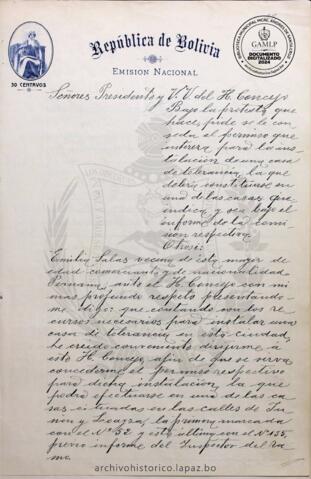 República de Bolivia
EMISION NACIONAL
30 CENTAVOS
GAMLP
DOCUMENTO
DIGITALIZADO
2024
Señores Presidente y V. V. del H. Concejo
Bajo la protesta que
hace, pide se le con
ceda el permiso que
para la ins
talación de una casa
de tolerancia, la que
deberá constituirse en
una de las casas que
indica y sea bajo el
informe de la comi
sion respectiva.
Otrosi:
Emilia Salas vecina de esta, mayor de
edad comerciante y de nacionalidad
Peruana, ante el H. Concejo con mi
mas profundo respeto presentándo-
me digo: que contando con los re
cursos necesarios para instalar una
casa de tolerancia en esta ciudad,
he creido conveniente dirigirme á
este H. Concejo, afin de que se sirva
concederme el permiso respectivo
para dicha instalación, la que
podrá efectuarse en una de las ca
sas situadas en las calles de Ju
nin y , la primera marcada
con el Nº 52 y esta última con el Nº 135,
previo informe del Inspector del Ra
mo.
archivohistorico.lapaz.bo